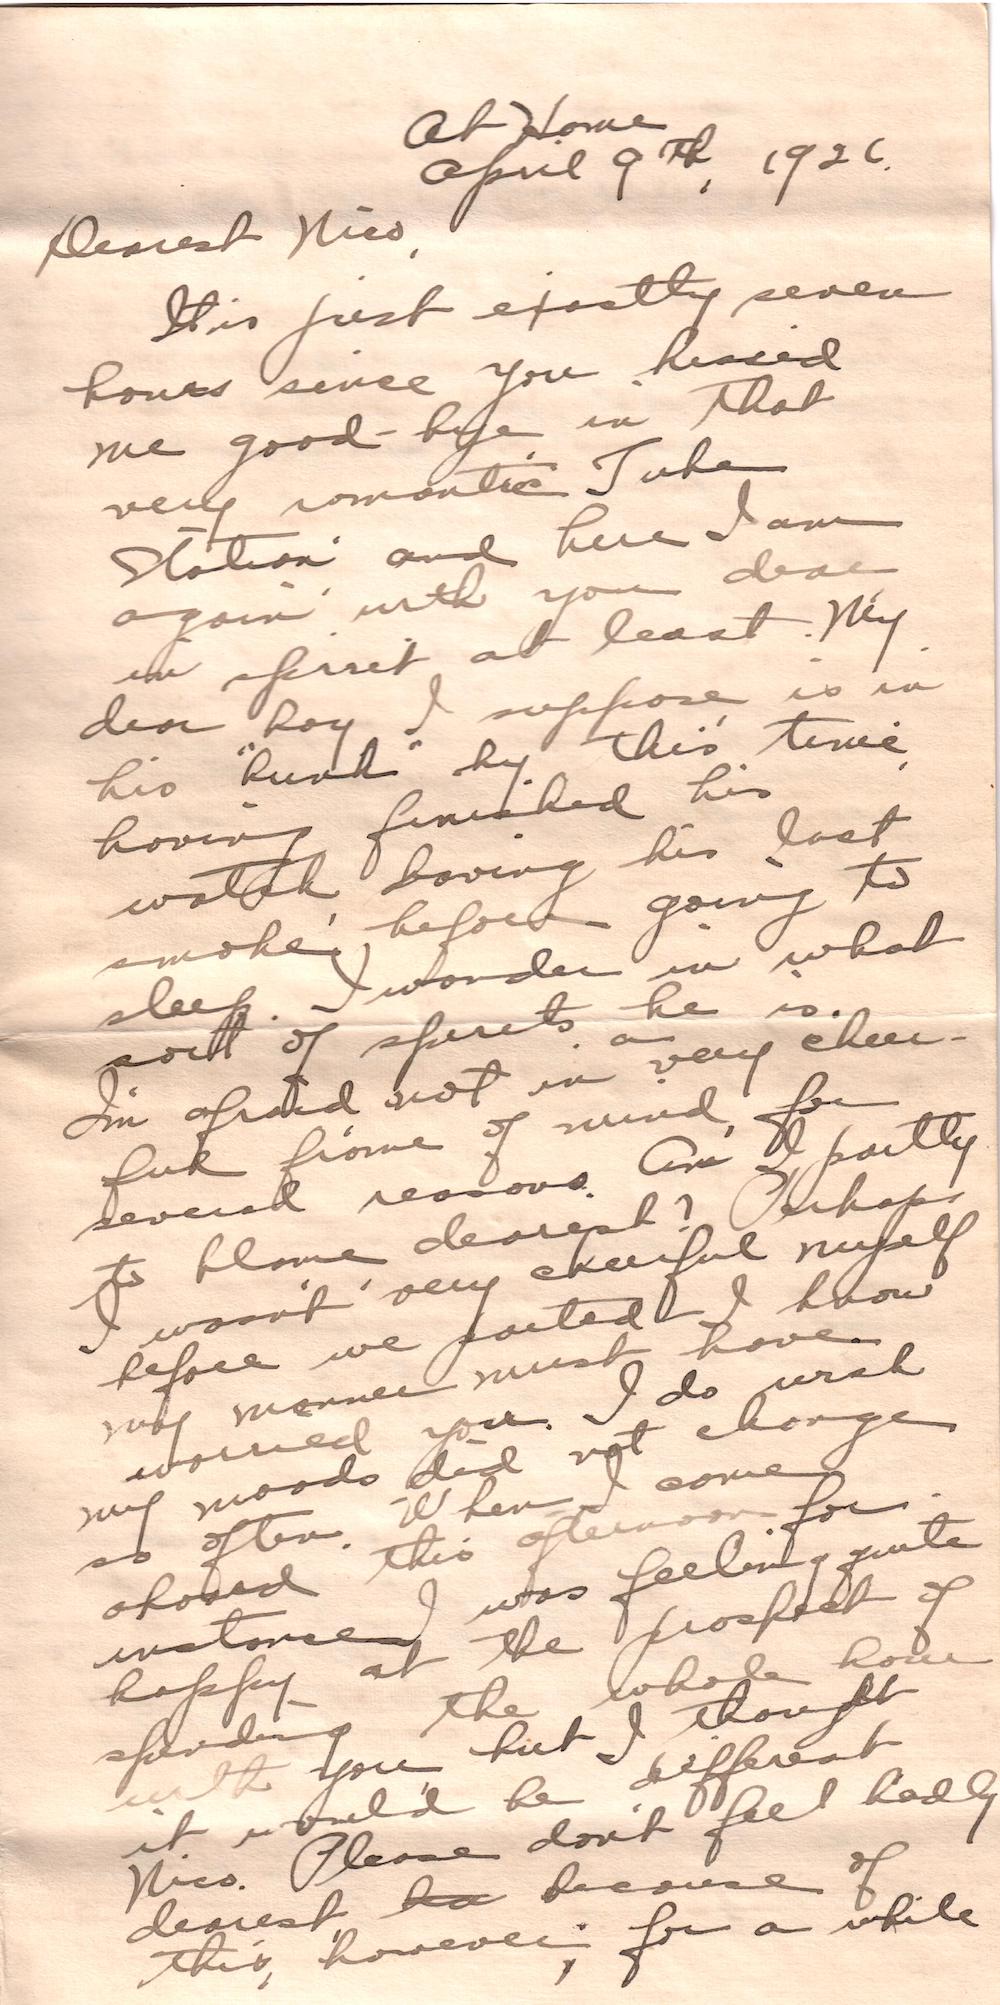 At Home
April 9th, 1926.
Dearest Nico,
It is just exactly seven
hours since you kissed
me good-bye in that
very romantic Tube
Station and here I am
again with you dear
in spirit at least. My
dear boy I suppose is in
his "bunk" by this time,
having finished his
watch, having his last
smoke, before going to
sleep. I wonder in what
sort of spirits he is.
I'm afraid not in a very cheer-
ful frame of mind, for
several reasons. Am I partly
to blame dearest? Perhaps
I wasn't very cheerful myself
before we parted I know
my manner must have
worried you. I do wish
my moods did not change
so often. When I came
aboard this afternoon for
instance I was feeling quite
happy at the prospect of
spending the whole hour
with you, but I thought
it would be different
Nico. Please don't feel badly
dearest because of
this, however, for a while